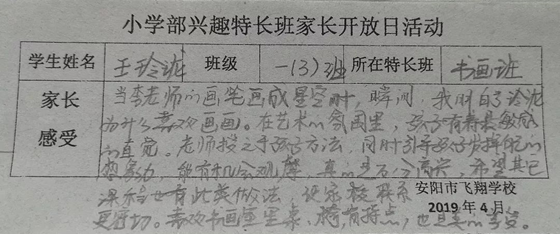 小学部兴趣特长班家长开放日活动
学生姓名 王玲泷 班级 一(3)班 所在特长班 书画班
家长感受
当李老师的画笔画成星空时，瞬间，我明白了玲泷
为什么喜欢画画。在艺术的氛围里，孩子有特长敏感
的直觉。老师授之于好方法，同时引导孩子发挥它的
想象力，能有机会观摩，真的是十分高兴，希望其它
课程也有此类似法，使家校联系
更密切。喜欢书画室里桌、椅有特点，也是真的享受。
安阳市飞翔学校
2019年4月